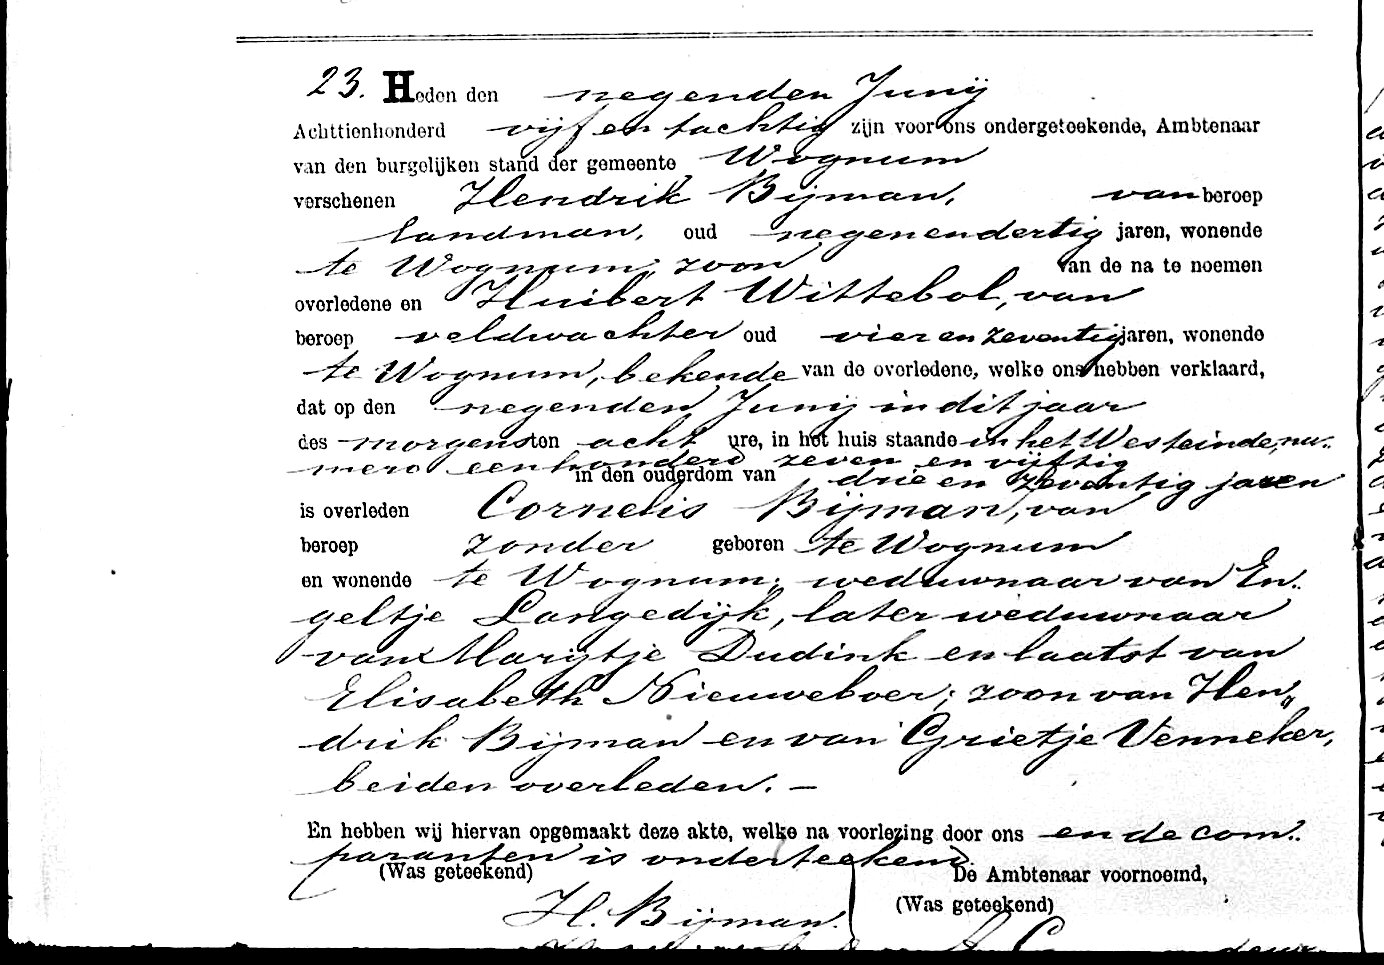 23. Heden den negenden Junij
Achttienhonderd vijf en tachtig zijn voor ons ondergeteekende, Ambtenaar
van den burgelijken stand der gemeente Wognum
verschenen Hendrik Bijman, van beroep
landman, oud negenendertig jaren, wonende
te Wognum, zoon van de na te noemen
overledene en Huibert Wittebol, van
beroep veldwachter oud vier en zeventig jaren, wonende
te Wognum, bekende van de overledene, welke ons hebben verklaard,
dat op den negenden Junij in dit jaar
des morgens ten acht ure, in het huis staande in het Westeinde, nu..
mero eenhonderd zeven en vijftig
in den ouderdom van drie en zeventig jaren
is overleden Cornelis Bijman, van
beroep zonder geboren te Wognum
en wonende te Wognum; weduwnaar van En..
geltje Langedijk, later weduwnaar
van Marijtje Dudink en laatst van
Elisabeth Nieuweboer; zoon van Hen„
drik Bijman en van Grietje Venneker,
beiden overleden. —
En hebben wij hiervan opgemaakt deze akte, welke na voorlezing door ons en de com..
paranten is onderteekend.
(Was geteekend) De Ambtenaar voornoemd,
H. Bijman. (Was geteekend)